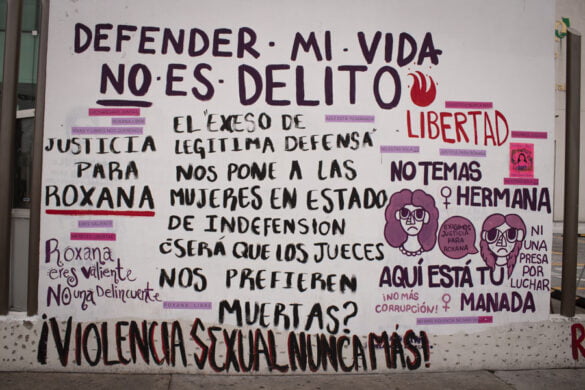 DEFENDER · MI · VIDA
NO · ES · DELITO
LIBERTAD
JUSTICIA
PARA
ROXANA
Roxana
eres valiente
NO una Delincuente
EL "EXESO DE
LEGITIMA DEFENSA"
NOS PONE A LAS
MUJERES EN ESTADO
DE INDEFENSION
¿SERÁ QUE LOS JUECES
NOS PREFIEREN
MUERTAS?
NO TEMAS
HERMANA
EXIGIMOS
JUSTICIA
PARA
ROXANA
AQUÍ ESTÁ TU
MANADA
¡NO MÁS
CORRUPCIÓN!
NI
UNA
PRESA
POR
LUCHAR
¡VIOLENCIA SEXUAL NUNCA MÁS!